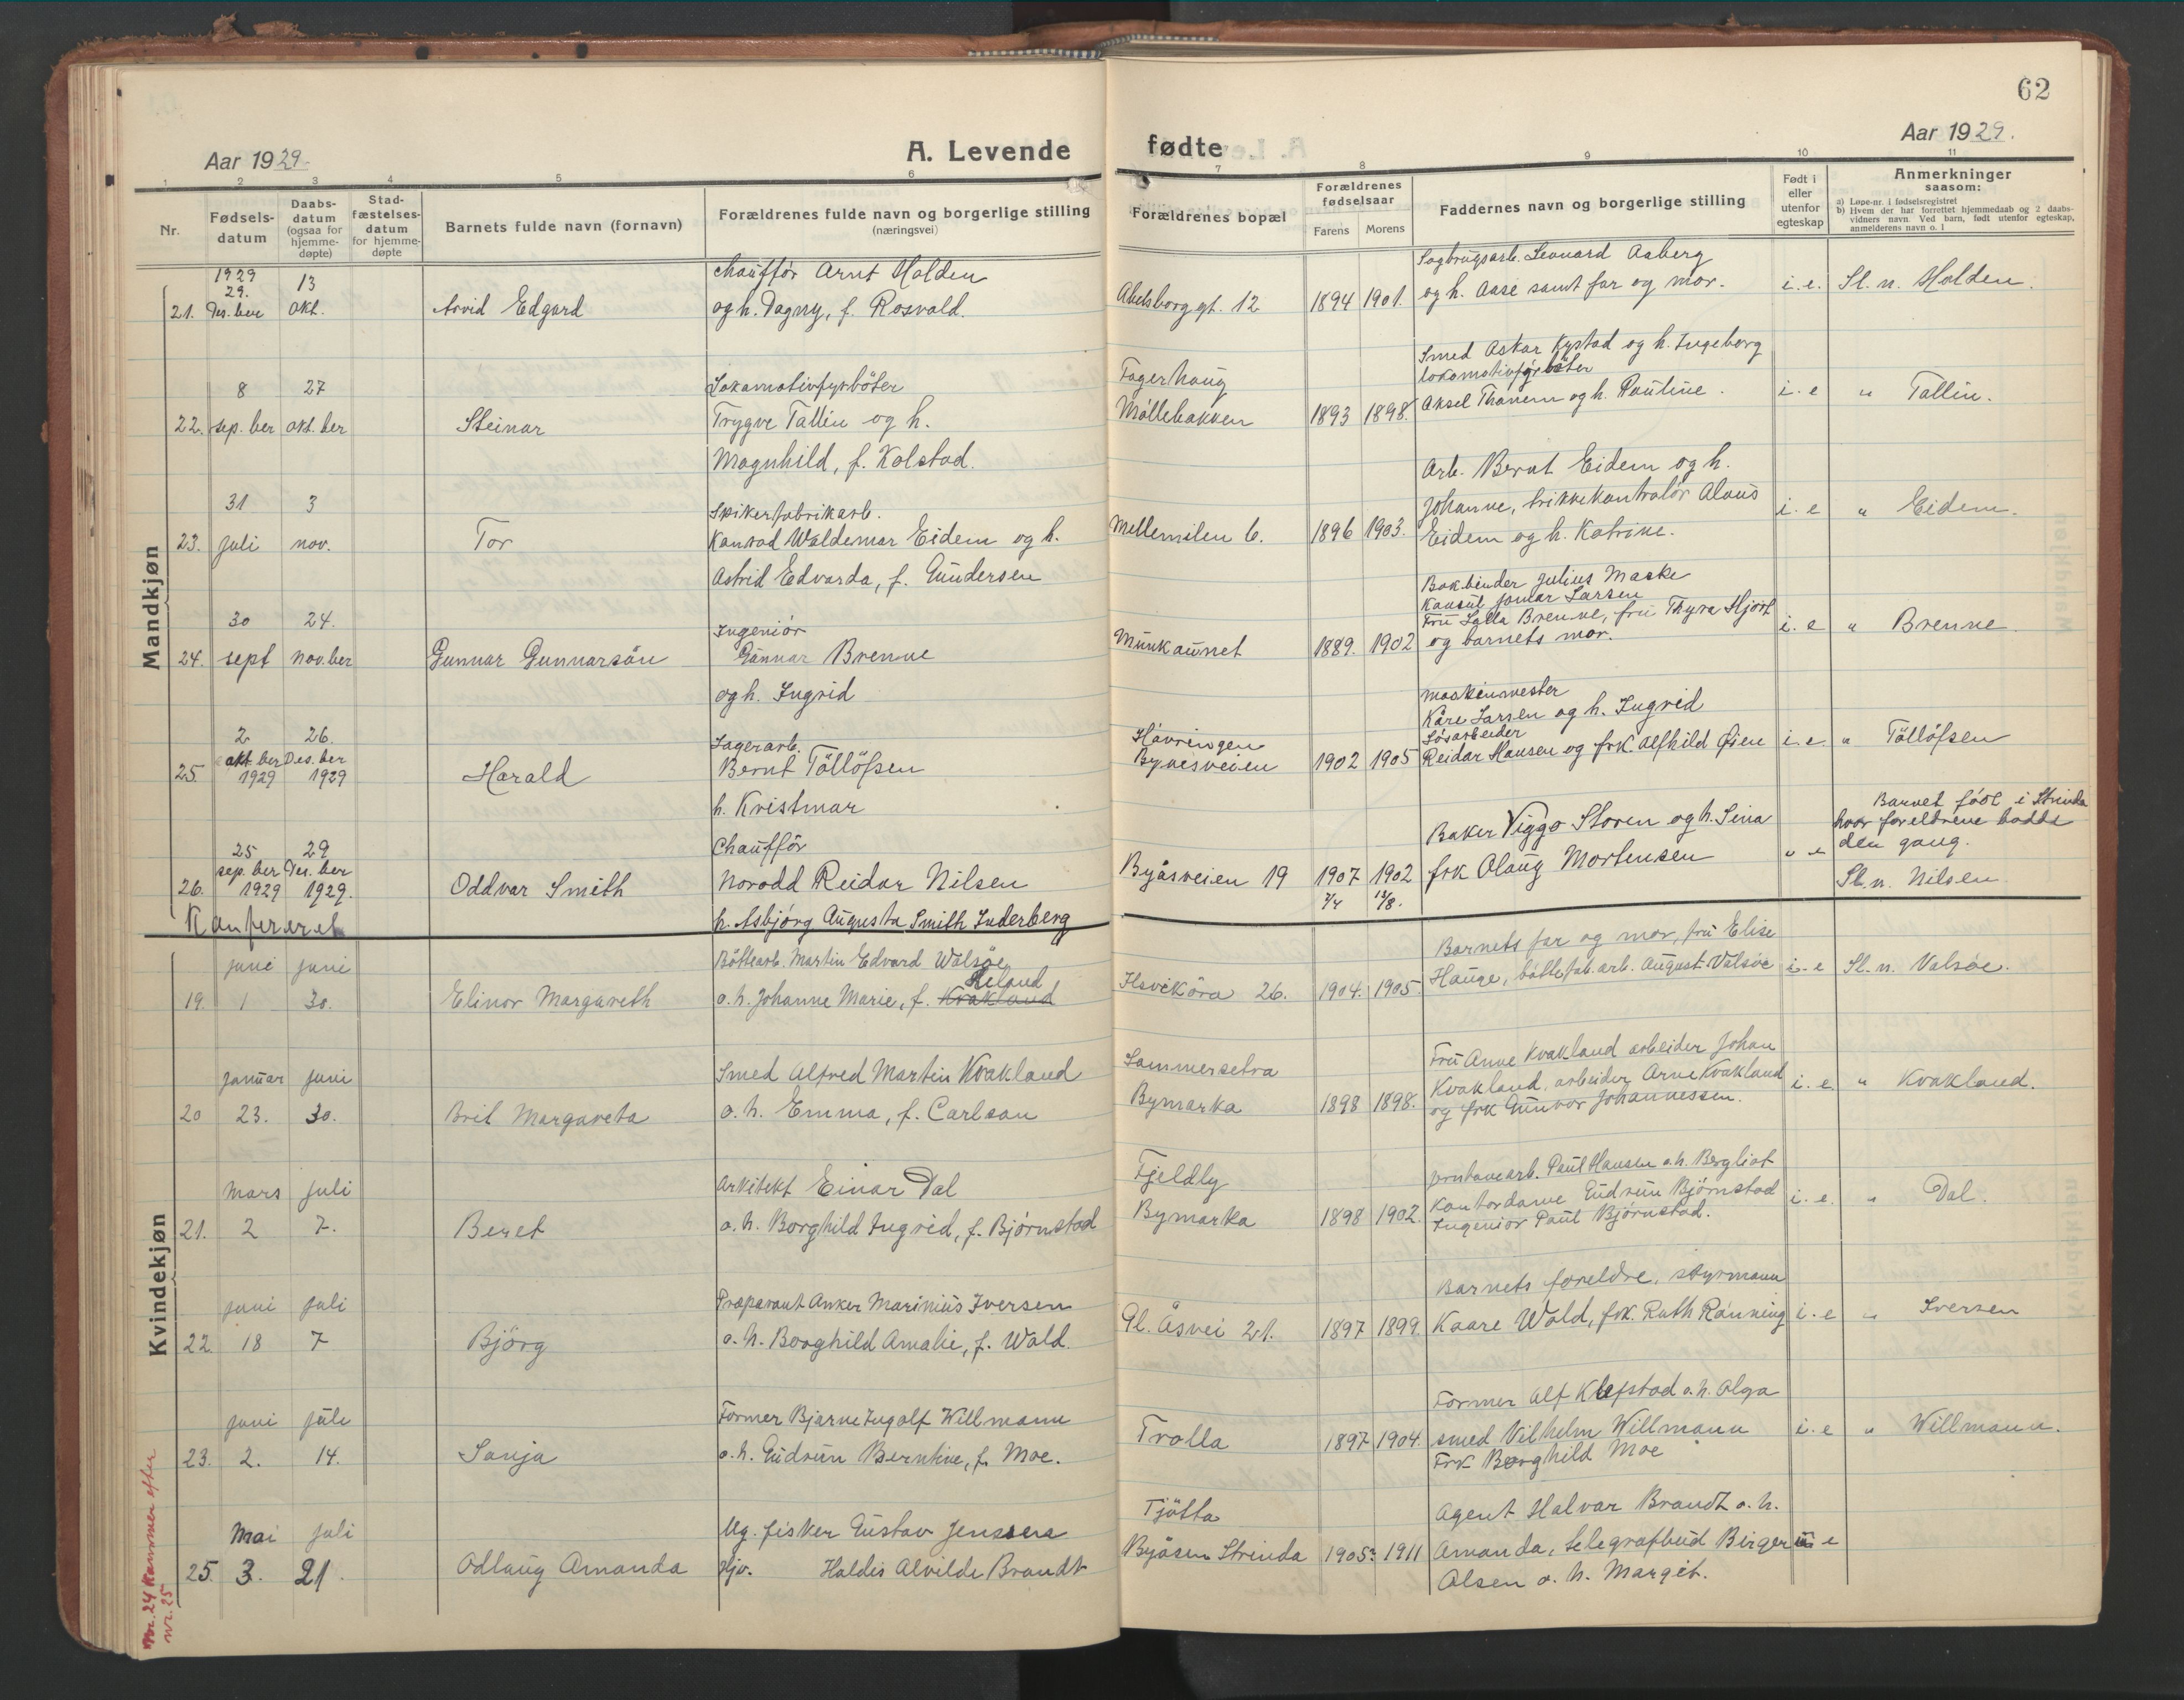 62
Aar 1929.
A. Levende
fødte
Aar 1929.
1 2 3 4 5 6 7 8 9 10 11
Nr.
Fødsels-
datum
Daabs-
datum
(ogsaa for
hjemme-
døpte)
Stad-
fæstelses-
datum
for hjemme-
døpte
Barnets fulde navn (fornavn)
Forældrenes fulde navn og borgerlige stilling
(næringsvei)
Forældrenes bopæl
Forældrenes
fødselsaar
Farens Morens
Faddernes navn og borgerlige stilling
Født i
eller
utenfor
egteskap
Anmerkninger
saasom:
a) Løpe-nr. i fødselsregistret
b) Hvem der har forrettet hjemmedaab og 2 daabs-
vidners navn. Ved barn, født utenfor egteskap,
anmelderens navn o. l
Mandkjøn
1929
29. 13
21. Des.ber okt. Arvid Edgard
Chauffør Arnt Holden
og h. Dagny, f. Rosvold.
Abelsborg gt. 12 1894 1901.
Sagbrugsarb. Leonard Aaberg
og h. Aase samt far og mor.
i. e. Sl. n. Holden.
8 27
22. sep. ber okt. ber Steinar
Lokomotivfyrbøter
Trygve Tallin og h.
Magnhild, f. Kolstad.
Fagerhaug
Møllebakken 1893 1898.
Smed Oskar Kystad og h. Ingeborg
lokomotivfyrbøter
Aksel Thanem og h. Pauline.
i. e " Tallin.
31 3
23. juli nov. Tor
Spikerfabrikarb.
Konrad Waldemar Eidem og h.
Astrid Edvarda, f. Gundersen
Mellemilen 6. 1896 1903.
Arb. Bernt Eidem og h.
Johanne, trikkekontrolør Olaus
Eidem og h. Katrine.
i. e " Eidem.
30 24.
24. sept nov.ber Gunnar Gunnarsön
Ingeniør
Gunnar Brenne
og h. Ingrid
Munkaunet 1889. 1902
Bokbinder Julius Maske
Konsul Jomar Larsen
Fru Lalla Brenne, fru Thyra Hjort
og barnets mor.
i. e " Brenne
2 26.
okt. ber Des. ber
25. 1929 1929 Harald
Lagerarb.
Bernt Töllöfsen
h. Kristmar
Håvringen
Bynesveien 1902 1905
maskinmester
Kåre Larsen og h. Ingrid
Løsarbeider
Reidar Hansen og frk. Alfhild Øien
i. e " Töllöfsen
25 29
sep. ber Des. ber
26. 1929 1929. Oddvar Smith
Chauffør
Norodd Reidar Nilsen
h. Asbjørg Augusta Smith Inderberg
Byåsveien 19 1907 1902
7/4 12/8.
Baker Viggo Storen og h. Lina
frk Olaug Mortensen
" e
Barnet födt i Strinda
hvor foreldrene bodde
den gang.
Sl. n. Nilsen
Konfereret
Kvindekjøn
juni juni
19. 1 30. Elinor Margareth
Bøttearb. Martin Edvard Walsøe
Reland
o. h. Johanne Marie, f. Kvakland
Ilsvikøra 26. 1904. 1905.
Barnets far og mor, fru Elise
Hauge, bøttefab. arb. August Valsøe
i. e Sl. n. Valsøe.
januar juni
20 23. 30. Brit Margareta
Smed Alfred Martin Kvakland
o. h. Emma, f. Carlson
Sommersetra
Bymarka 1898 1898.
Fru Anne Kvakland arbeider Johan
Kvakland, arbeider Arne Kvakland
og frk Gunvor Johannessen.
i. e. " Kvakland.
mars juli
21. 2 7. Beret
Arkitekt Einar Dal
o. h. Borghild Ingrid, f. Bjørnstad
Fjeldly
Bymarka 1898 1902.
jernbanearb. Paul Hansen o. h. Bergliot
Kontordame Gudrun Bjørnstad
Ingeniør Paul Bjørnstad.
i. e. " Dal.
juni juli
22. 18 7 Björg
Præparant Anker Marinius Iversen
o. h. Borghild Amalie, f. Wold.
Gl. Åsvei 21. 1897 1899.
Barnets foreldre, styrmann
Kaare Wold, frk. Ruth Rønning
i. e " Iversen
juni juli
23. 2. 14. Sonja
Former Bjarne Ingolf Willmann
o. h. Gudrun Berntine, f. Moe.
Trolla 1897 1904.
Former Alf Klefstad o. h. Olga
smed Vilhelm Willmann
Frk Borghild Moe
i. e " Willmann.
Mai juli
25. 3. 21. Odlaug Amanda
Ug. fisker Gustav Jenssen
Hjv. Haldis Alvilde Brandt
Tjøtta
Byåsen Strinda 1905: 1911
Agent Halvar Brandt o. h.
Amanda, telegrafbud Birger
Olsen o. h. Margit.
u e
Nr. 24 kommer efter
nr. 25